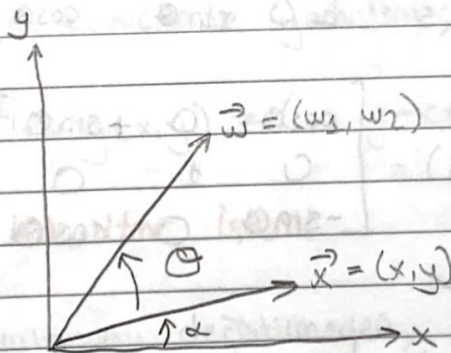 y
w⃗ = (w1, w2)
θ
x⃗ = (x,y)
α
x